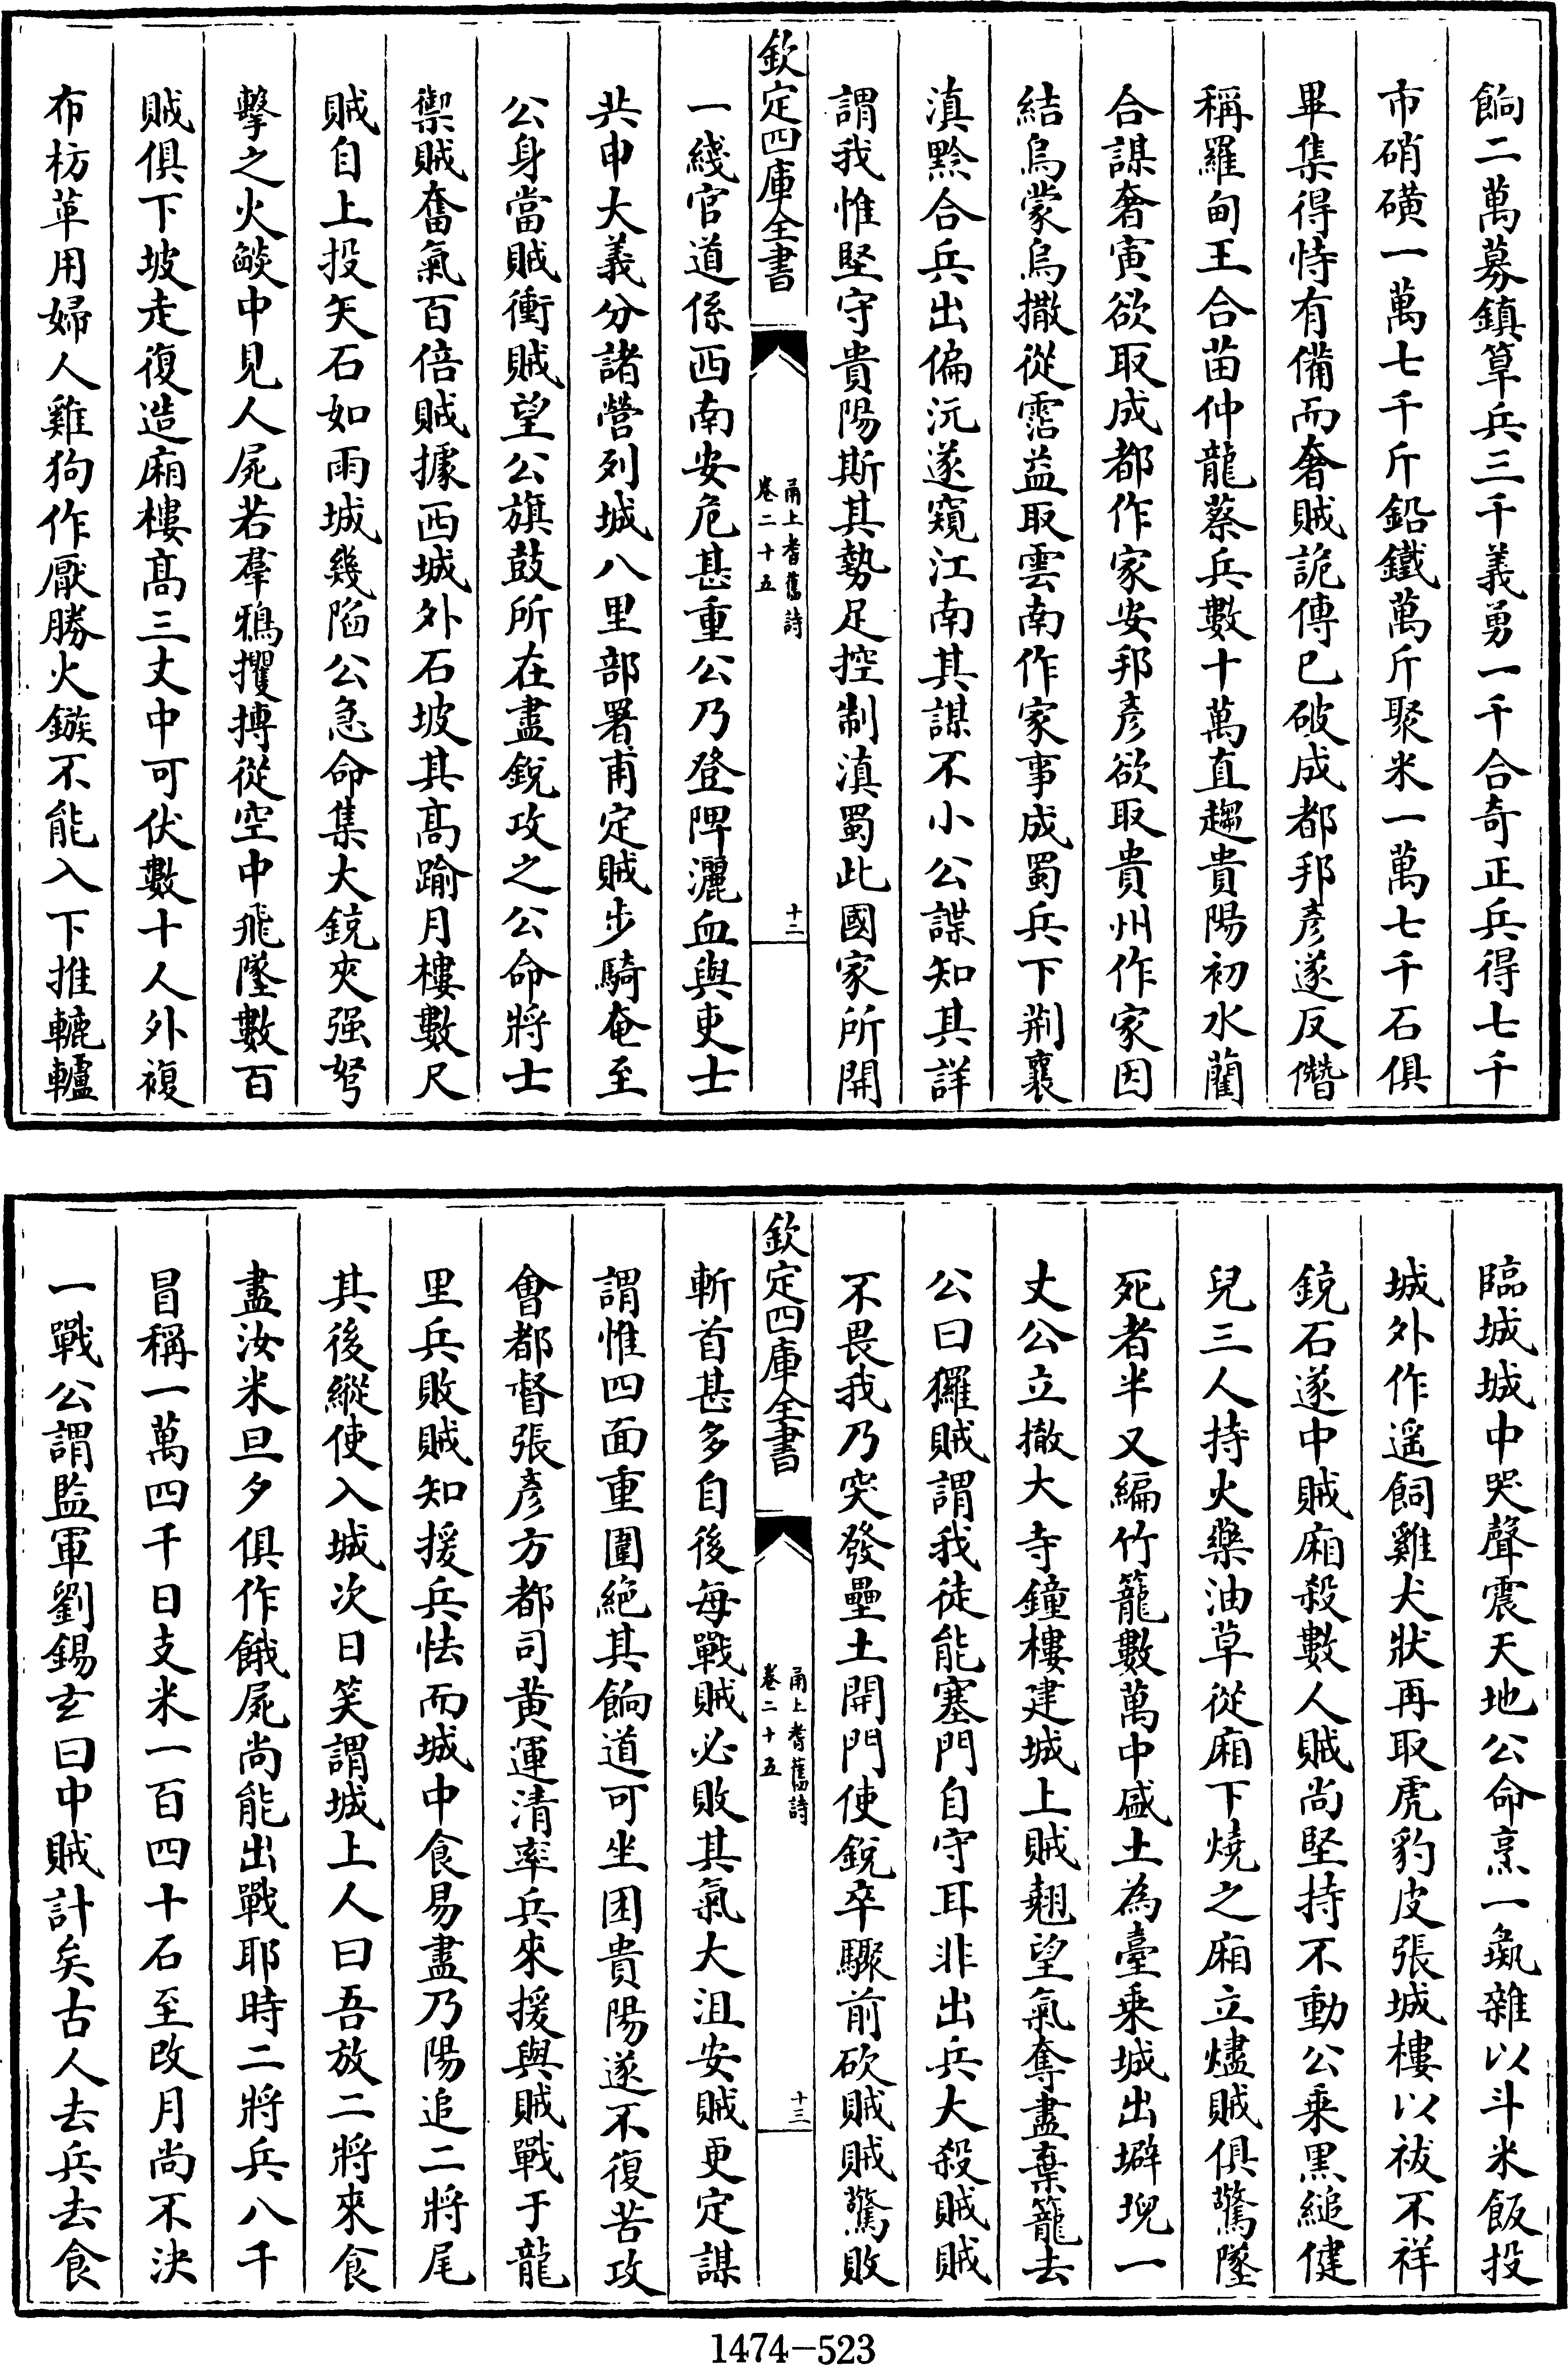 餉二萬募鎮筸兵三千義勇一千合奇正兵得七千
市硝磺一萬七千斤鉛鐵萬斤聚米一萬七千石俱
畢集得恃有備而奢賊詭傳已破成都邦彥遂反僭
稱羅甸王合苗仲龍蔡兵數十萬直趨貴陽初水藺
合謀奢寅欲取成都作家安邦彥欲取貴州作家因
結烏蒙烏撒從霑益取雲南作家事成蜀兵下荆襄
滇黔合兵出偏沅遂窺江南其謀不小公諜知其詳
謂我惟堅守貴陽斯其勢足控制滇蜀此國家所開
欽定四庫全書
甬上耆舊詩
卷二十五
十二
一綫官道係西南安危甚重公乃登陴灑血與吏士
共申大義分諸營列城八里部署甫定賊步騎奄至
公身當賊衝賊望公旗鼓所在盡銳攻之公命將士
禦賊奮氣百倍賊據西城外石坡其髙踰月樓數尺
賊自上投矢石如雨城幾陷公急命集大銃夾强弩
擊之火燄中見人屍若羣鴉攫搏從空中飛墜數百
賊俱下坡走復造廂樓髙三丈中可伏數十人外複
布枋革用婦人雞狗作厭勝火鏃不能入下推轆轤
臨城城中哭聲震天地公命烹一彘雜以斗米飯投
城外作遥飼雞犬狀再取虎豹皮張城樓以祓不祥
銃石遂中賊廂殺數人賊尚堅持不動公乗黒縋健
兒三人持火藥油草從廂下燒之廂立燼賊俱驚墜
死者半又編竹籠數萬中盛土為臺乗城出壀堄一
丈公立撤大寺鐘樓建城上賊翹望氣奪盡棄籠去
公曰玀賊謂我徒能塞門自守耳非出兵大殺賊賊
不畏我乃突發壘土開門使銳卒驟前砍賊賊驚敗
欽定四庫全書
甬上耆舊詩
卷二十五
十三
斬首甚多自後每戰賊必敗其氣大沮安賊更定謀
謂惟四面重圍絶其餉道可坐困貴陽遂不復苦攻
會都督張彥方都司黄運清率兵來援與賊戰于龍
里兵敗賊知援兵怯而城中食易盡乃陽追二將尾
其後縱使入城次日笑謂城上人曰吾放二將來食
盡汝米旦夕俱作餓屍尚能出戰耶時二將兵八千
冒稱一萬四千日支米一百四十石至改月尚不決
一戰公謂監軍劉錫玄曰中賊計矣古人去兵去食
1474-523